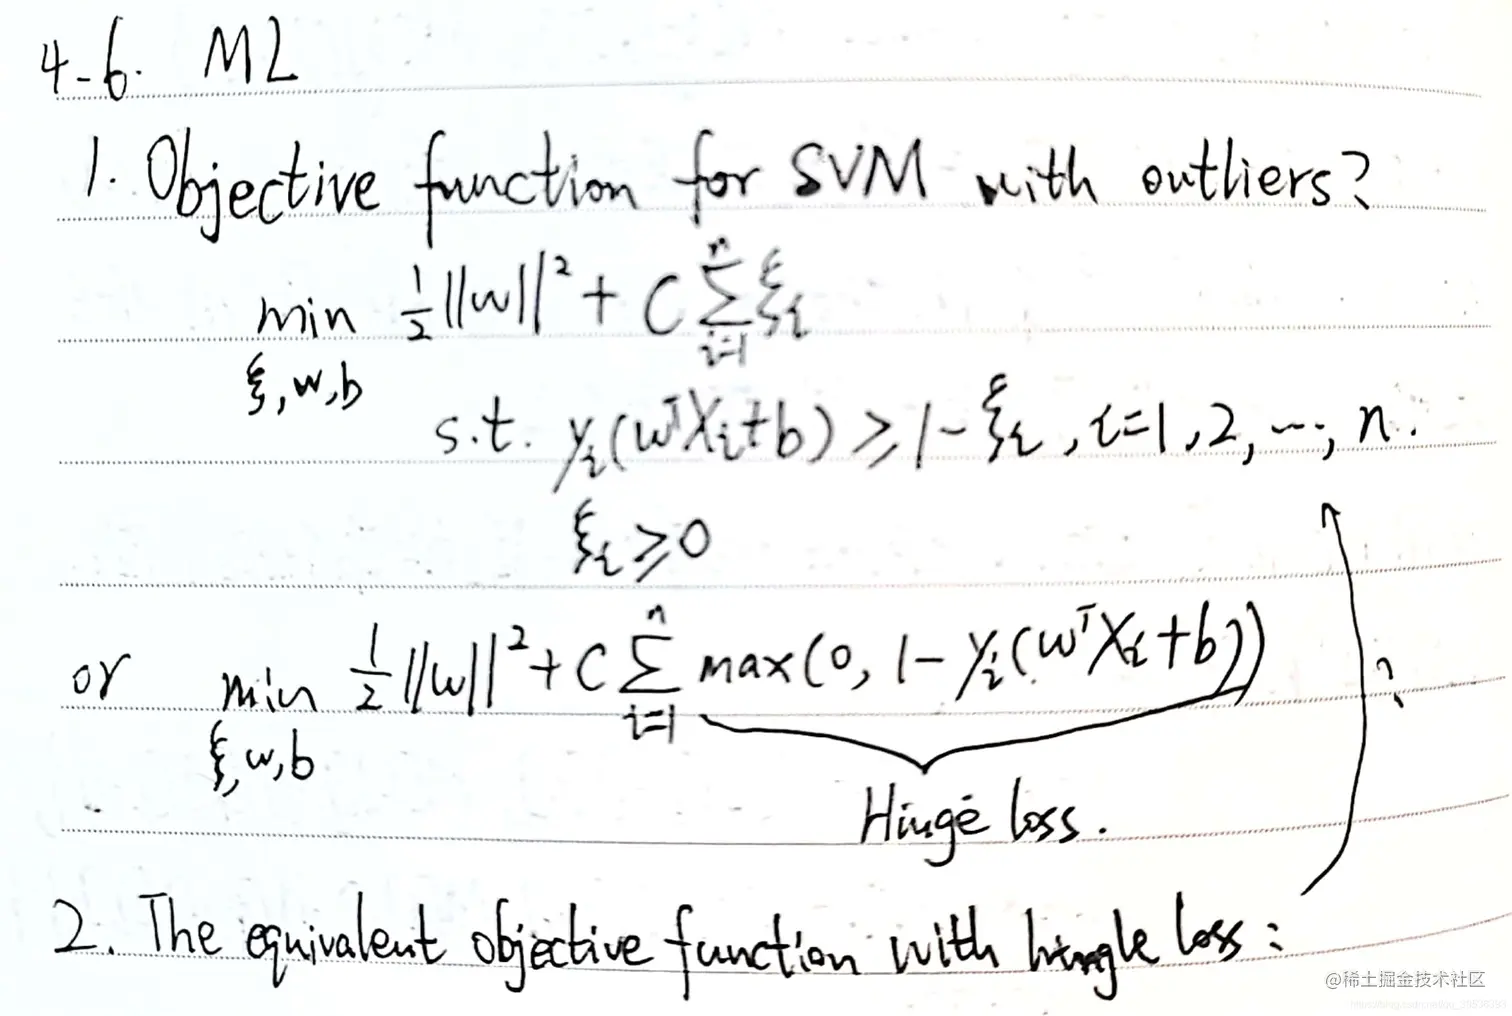 4-6. ML
1. Objective function for SVM with outliers?
min 1/2 ||w||² + C ∑ᵢ₌₁ⁿ ξᵢ
ξ, w, b
s.t. yᵢ(wᵀXᵢ+b) ≥ 1-ξᵢ, i=1, 2, ..., n.
ξᵢ ≥ 0
or min 1/2 ||w||² + C ∑ᵢ₌₁ⁿ max(0, 1-yᵢ(wᵀXᵢ+b)) ?
ξ, w, b
Hinge loss.
2. The equivalent objective function with hingle loss:
@稀土掘金技术社区